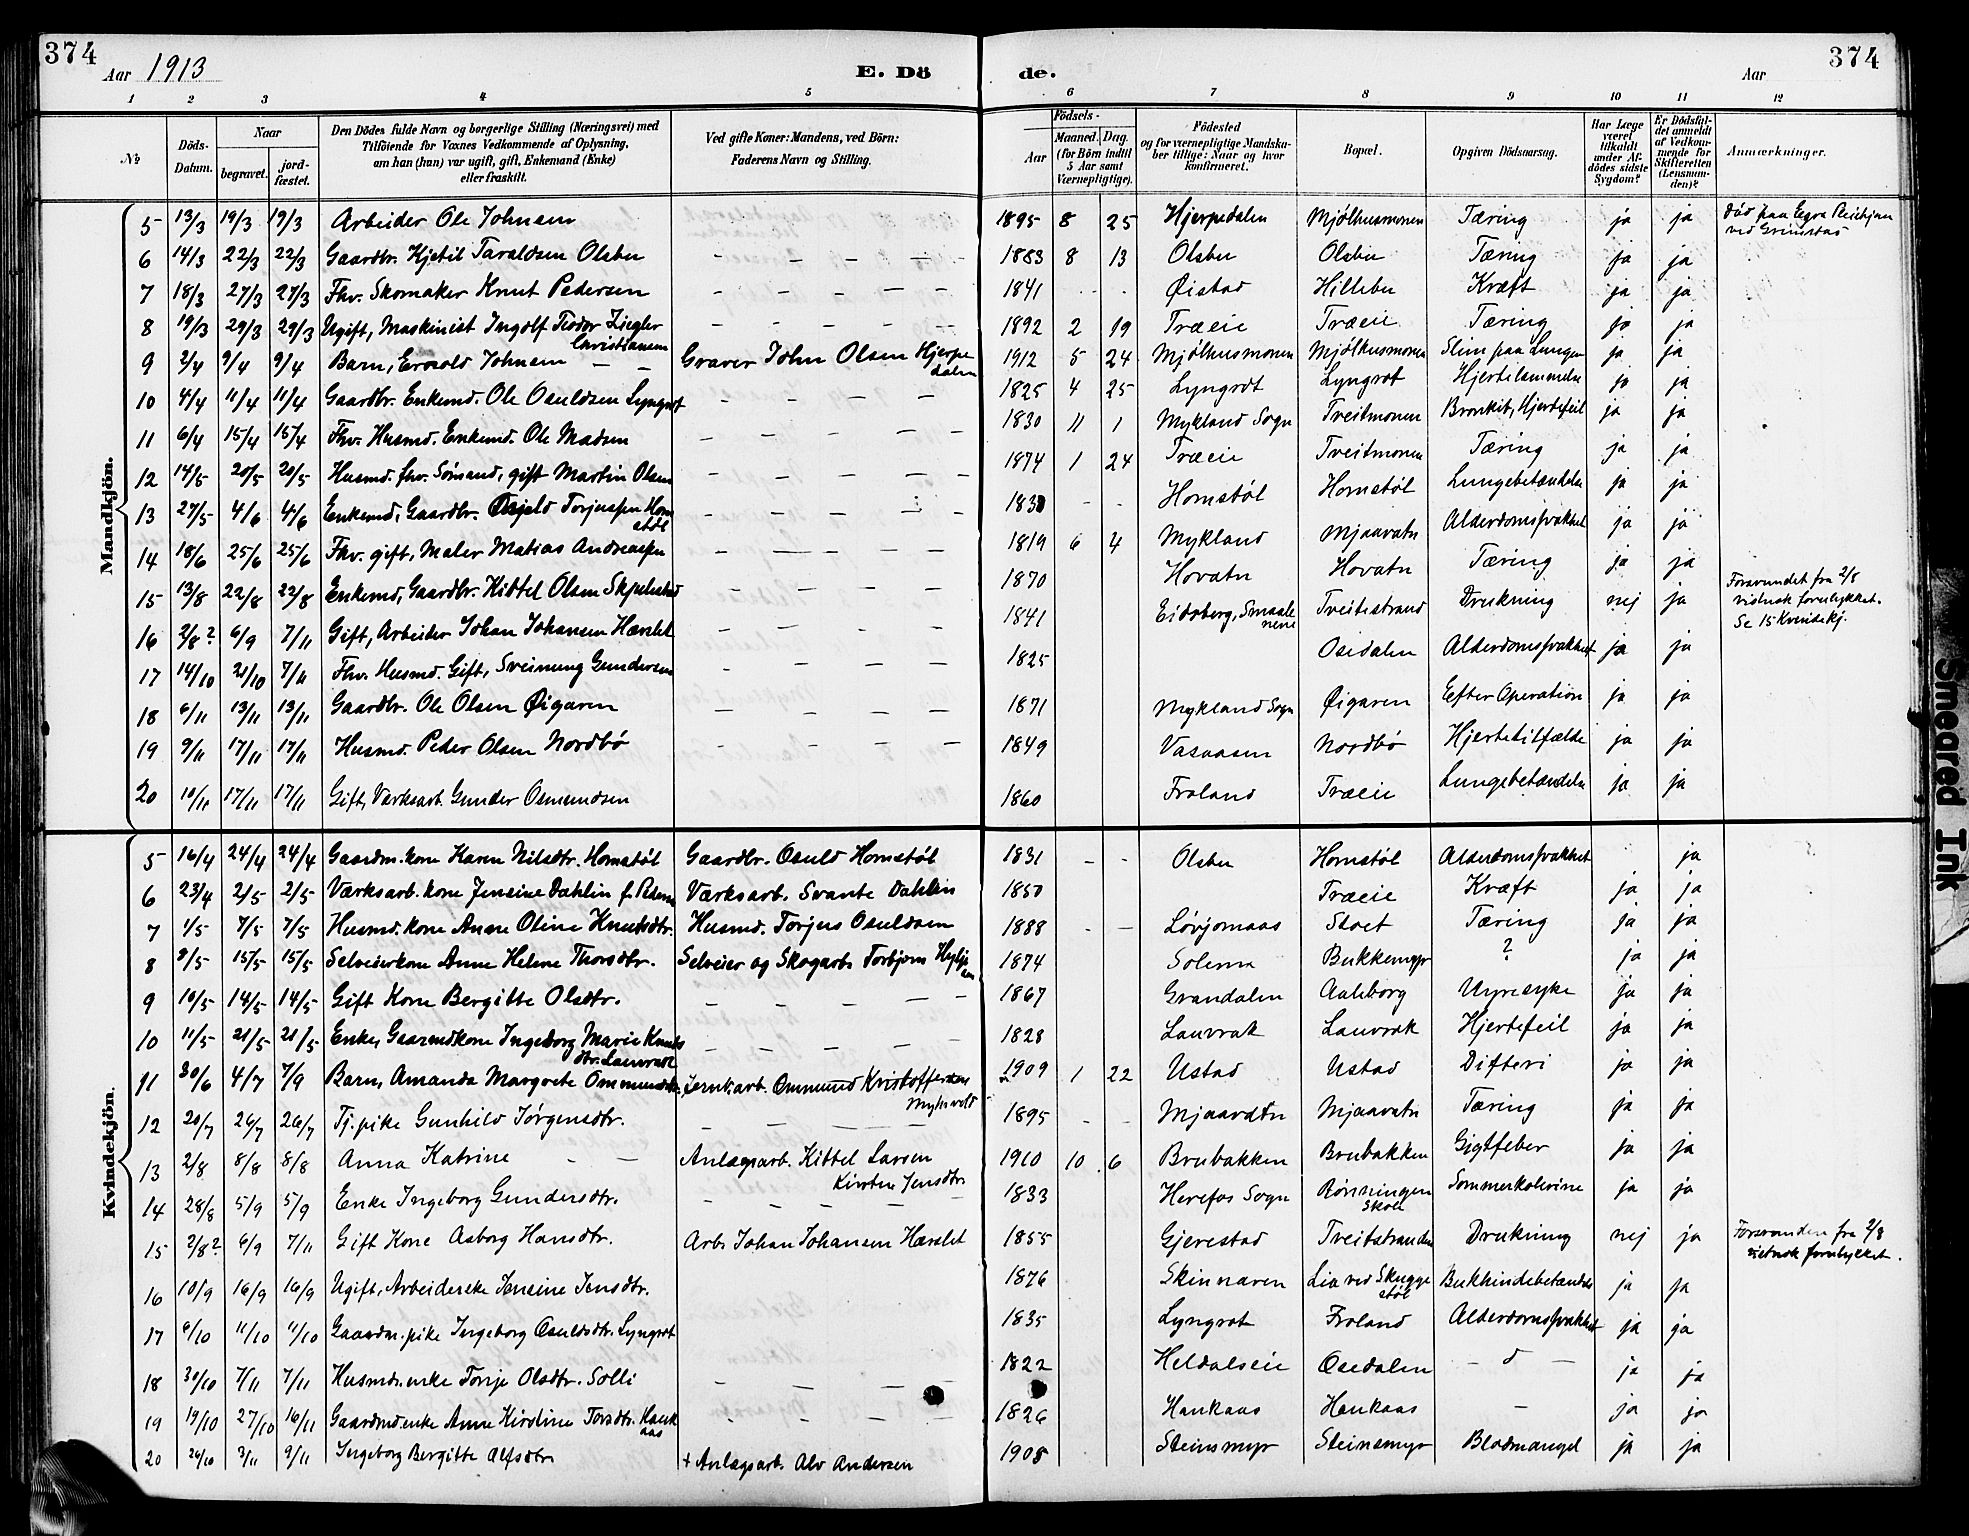 374
Aar 1913
E. Dö
de.
Aar
374
1 2 3 4 5 6 7 8 9 10 11 12
No
Döds-Datum.
Naar
begravet.
jordfæstet.
Den Dödes fulde Navn og borgerlige Stilling (Næringsvei) med
Tilföiende for Voxnes Vedkommende af Oplysning,
om han (hun) var ugift, gift, Enkemand (Enke)
eller fraskilt.
Ved gifte Koner: Mandens, ved Börn:
Faderens Navn og Stilling.
Födsels-
Aar
Maaned. Dag.
(for Börn indtil 5 Aar samt Værnepligtige).
Födested
og for værnepligtige Mandskaber tillige: Naar og hvor konfirmeret.
Bopæl.
Opgiven Dödsaarsag.
Har Læge været tilkaldt under Afdödes sidste Sygdom?
Er Dödsfaldet anmeldt af Vedkommende for Skifteretten (Lensmanden)?
Anmærkninger.
Mandkjön.
5 13/3 19/3 19/3 Arbeider Ole Johnsen 1895 8 25 Hjerpedalen Mjølhusmonen Tæring ja ja Død paa
ved Grimstad
6 14/3 22/3 22/3 Gaardbr. Kjetil Taraldsen Olsbu – – – – – 1883 8 13 Olsbu Olsbu Tæring ja ja
7 18/3 27/3 27/3 Fhv. Skomaker Knut Pedersen – – – – – 1841 - - Øistad Hillebu Kræft ja ja
8 19/3 29/3 29/3 Ugift, Maskinist Ingolf Tiodor Ziegler
Christiansen – – – – – 1892 2 19 Træeie Træeie Tæring ja ja
9 2/4 9/4 9/4 Barn, Johnsen – – Graver John Olsen Hjerpe
dalen 1912 5 24 Mjølhusmonen Mjølhusmonen Slim paa Lungen ja ja
10 4/4 11/4 11/4 Gaardbr. Enkemd. Ole Osuldsen Lyngrot – – – – 1825 4 25 Lyngrot Lyngrot Hjertelammelse ja ja
11 6/4 15/4 15/4 Fhv. Husmd. Enkemd. Ole Madsen – – – – – 1830 11 1 Mykland Sogn Tveitmonen Bronkit, Hjertefeil ja ja
12 14/5 20/5 20/5 Husmd. fhv. Sømand, gift Martin Olsen – – – – – 1874 1 24 Træeie Tveitmonen Tæring ja ja
13 27/5 4/6 4/6 Enkemd, Gaardbr. Torjussen Hom
støl – – – – 1830 - - Homstøl Homstøl Lungebetændelse ja ja
14 18/6 25/6 25/6 Fhv. gift, Maler Matias Andreassen – – – – – 1819 6 4 Mykland Mjaavatn Alderdomssvakhet ja ja
15 13/8 22/8 22/8 Enkemd, Gaardbr. Kittel Olsen – – – – – 1870 Hovatn Hovatn Tæring ja ja
16 2/8? 6/9 7/11 Gift, Arbeider Johan Johansen Hærslet – – – – – 1841 Eidsberg, Smaale
nene Tveitestrand Drukning nej ja Forsvundet fra 2/8
vistnok forulykket.
Se 15 Kvindekj.
17 14/10 21/10 7/11 Fhv. Husmd. Gift, Sveinung Gundersen – – – – – 1825 Osedalen Alderdomssvakhet ja ja
18 6/11 13/11 13/11 Gaardbr. Ole Olsen Øigaren – – – – – 1871 Mykland Sogn Øigaren Efter Operation ja ja
19 9/11 17/11 17/11 Husmd. Peder Olsen Nordbø – – – – – 1849 Vasaasen Nordbø Hjertetilfælde ja ja
20 10/11 17/11 17/11 Gift, Værksarb. Gunder Osmundsen 1860 Froland Træeie Lungebetændelse ja ja
Kvindekjön.
5 16/4 24/4 24/4 Gaardm. kone Karen Nilsdtr. Homstøl Gaardbr. Osuld Homstøl 1831 – – Olsbu Homstøl Alderdomssvakhet ja
6 23/4 2/5 2/5 Værksarb. kone Jensine Dahlin f. Peders Værksarb. Svante Dahlin 1850 Træeie Kræft ja ja
7 1/5 7/5 7/5 Husmd. kone Anne Oline Knutsdtr. Husmd. Torjus Osuldsen 1888 – – Løvjomaas Stoet Tæring ja ja
8 8/5 15/5 15/5 Selveierkone Anne Helene Thorsdtr. Selveier og Skogarb. Torbjørn 1874 Solema Bukkemyr ? ja ja
9 10/5 14/5 14/5 Gift Kone Bergitte Olsdtr. – – – – – 1867 Grandalen Aalsborg Nyresyke ja ja
10 11/5 21/5 21/5 Enke, Gaarmdkone Ingeborg Marie Knuts
dtr. Lauvrak – – – – – 1828 Lauvrak Lauvrak Hjertefeil ja ja
11 30/6 4/7 7/9 Barn, Amanda Margrete Ommundsdtr. Jernb.arb. Ommund Kristoffersen
Myhrvold 1909 1 22 Ustad Ustad Difteri ja ja
12 20/7 26/7 26/7 Tj. pike Gunhild Jørgensdtr. – – – – 1895 - - Mjaavatn Mjaavatn Tæring ja ja
13 2/8 8/8 8/8 Anna Katrine – – Anlægsarb. Kittel Larsen
Kirstine Jensdtr. 1910 10 6 Brubakken Brubakken Gigtfeber ja ja
14 28/8 5/9 5/9 Enke Ingeborg Gundersdtr. – – – – – 1833 Herefos Sogn Rønningen
Skole Sommerkolerine ja ja
15 2/8? 6/9 7/11 Gift Kone Asborg Hansdtr. Arb. Johan Johansen Hærslet 1855 Gjerestad Tveitstranden Drukning nej ja Forsvunden fra 2/8
vistnok forulykket.
16 10/9 16/9 16/9 Ugift, Arbeiderske Jensine Jensdtr. 1876 Skinnaren Lia ved Skugge
støl Bukhindebetændelse ja ja
17 6/10 11/10 11/10 Gaardm. pike Ingeborg Osuldsdtr. Lyngrot 1835 Lyngrot Froland Alderdomssvakhet ja ja
18 30/10 7/11 7/11 Husmds. enke Torje Olsdtr. Solli – – – – 1822 Heldalseie Osedalen – d – ja ja
19 19/10 27/10 16/11 Gaardmd enke Anne Kirstine Torsdtr. Hauk
aas – – – – – 1826 Haukaas Haukaas – ja ja
20 24/10 3/11 9/11 Ingeborg Bergitte Alfsdtr. + Anlægsarb. Alv Andersen 1908 Steinsmyr Steinsmyr Blodmangel ja ja
Smeared Ink